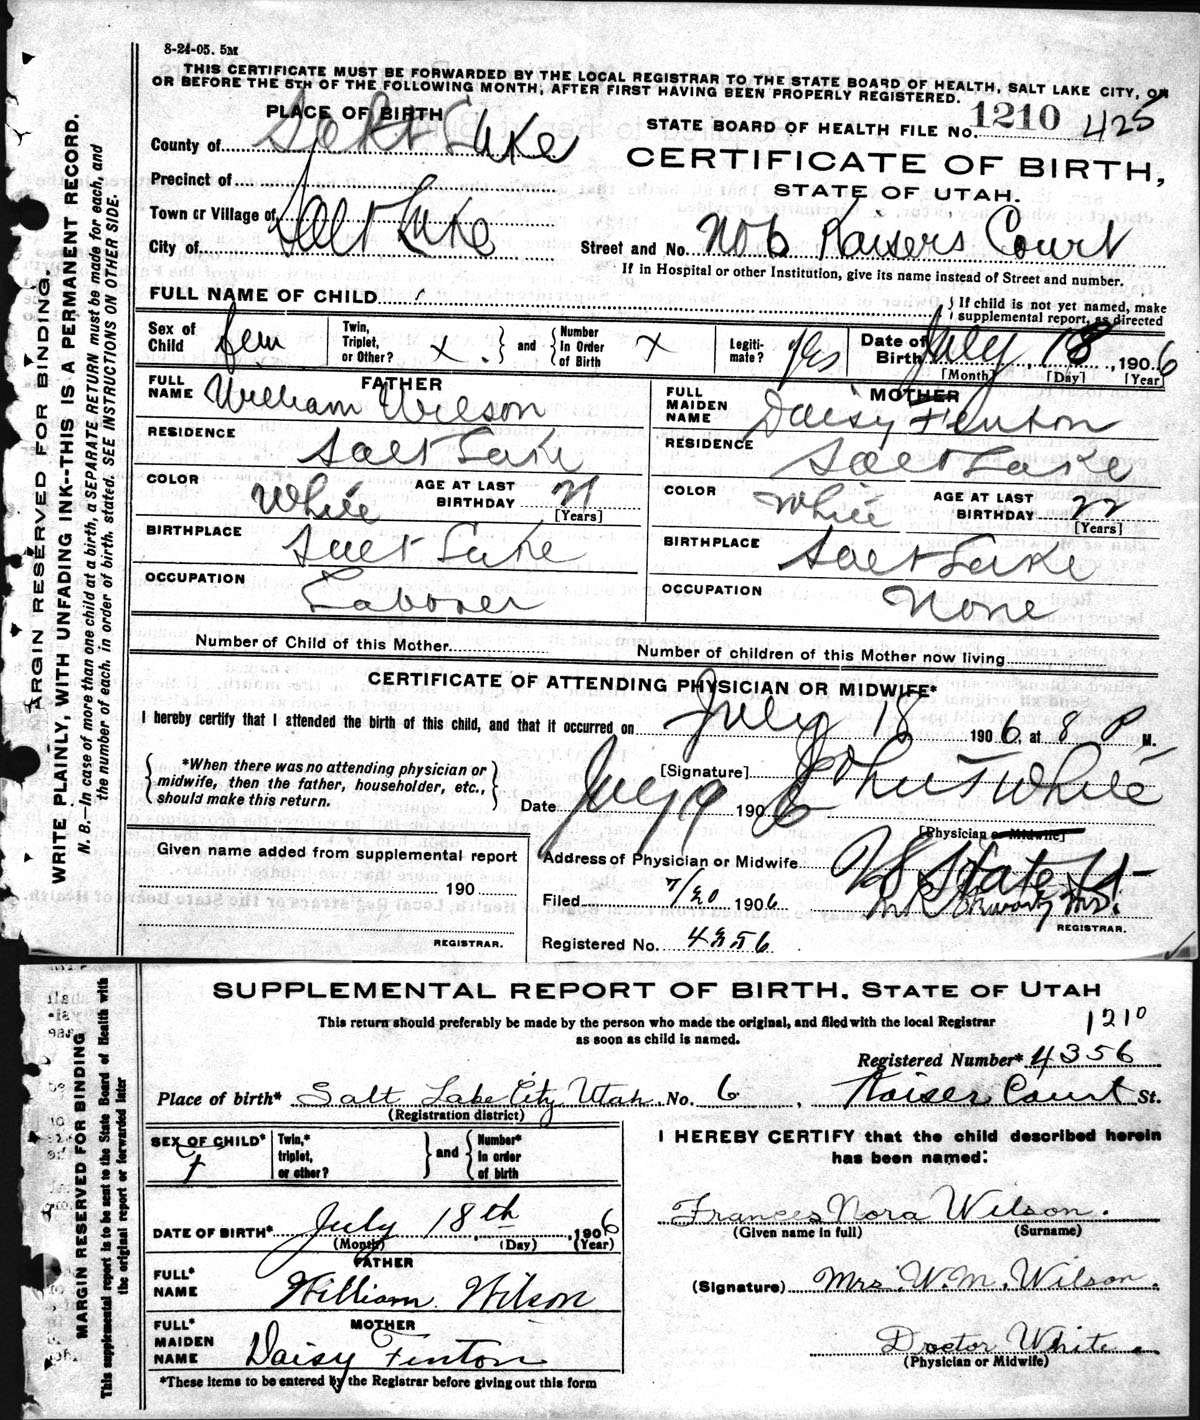 8-24-05. 5M
THIS CERTIFICATE MUST BE FORWARDED BY THE LOCAL REGISTRAR TO THE STATE BOARD OF HEALTH, SALT LAKE CITY, ON
OR BEFORE THE 5TH OF THE FOLLOWING MONTH, AFTER FIRST HAVING BEEN PROPERLY REGISTERED.
PLACE OF BIRTH
STATE BOARD OF HEALTH FILE No. 1210 425
County of Salt Lake
CERTIFICATE OF BIRTH,
STATE OF UTAH.
Precinct of
Town or Village of
City of Salt Lake
Street and No. No 6 Kaisers Court
If in Hospital or other Institution, give its name instead of Street and number.
FULL NAME OF CHILD
} If child is not yet named, make
} supplemental report, as directed
Sex of Child fem
Twin, Triplet, or Other? X
and
Number In Order of Birth X
Legitimate? Yes
Date of Birth July 18, 1906
[Month] [Day] [Year]
FATHER
FULL NAME William Wilson
RESIDENCE Salt Lake
COLOR White
AGE AT LAST BIRTHDAY 21
[Years]
BIRTHPLACE Salt Lake
OCCUPATION Laborer
MOTHER
FULL MAIDEN NAME Daisy Fenton
RESIDENCE Salt Lake
COLOR White
AGE AT LAST BIRTHDAY 22
[Years]
BIRTHPLACE Salt Lake
OCCUPATION None
Number of Child of this Mother
Number of children of this Mother now living
CERTIFICATE OF ATTENDING PHYSICIAN OR MIDWIFE*
I hereby certify that I attended the birth of this child, and that it occurred on July 18 1906, at 8 P M.
*When there was no attending physician or
midwife, then the father, householder, etc.,
should make this return.
[Signature] John T White
Date July 19 1906
[Physician or Midwife]
Given name added from supplemental report
190
REGISTRAR.
Address of Physician or Midwife State St
Filed 7/20 1906
REGISTRAR.
Registered No. 4356
MARGIN RESERVED FOR BINDING.
WRITE PLAINLY, WITH UNFADING INK--THIS IS A PERMANENT RECORD.
N. B.—In case of more than one child at a birth, a SEPARATE RETURN must be made for each, and
the number of each, in order of birth, stated. SEE INSTRUCTIONS ON OTHER SIDE.
SUPPLEMENTAL REPORT OF BIRTH. STATE OF UTAH
This return should preferably be made by the person who made the original, and filed with the local Registrar
as soon as child is named.
1210
Registered Number* 4356
Place of birth* Salt Lake City Utah. No. 6, Kaiser Court St.
(Registration district)
SEX OF CHILD* F
Twin,* triplet, or other?
and
Number* In order of birth
I HEREBY CERTIFY that the child described herein
has been named:
DATE OF BIRTH* July 18th, 1906
(Month) (Day) (Year)
Frances Nora Wilson.
(Given name in full) (Surname)
FATHER
FULL* NAME William Wilson
(Signature) Mrs W.M. Wilson.
MOTHER
FULL* MAIDEN NAME Daisy Fenton
Doctor White.
(Physician or Midwife)
*These items to be entered by the Registrar before giving out this form
MARGIN RESERVED FOR BINDING
This supplemental report is to be sent to the State Board of Health with
the original report or forwarded later